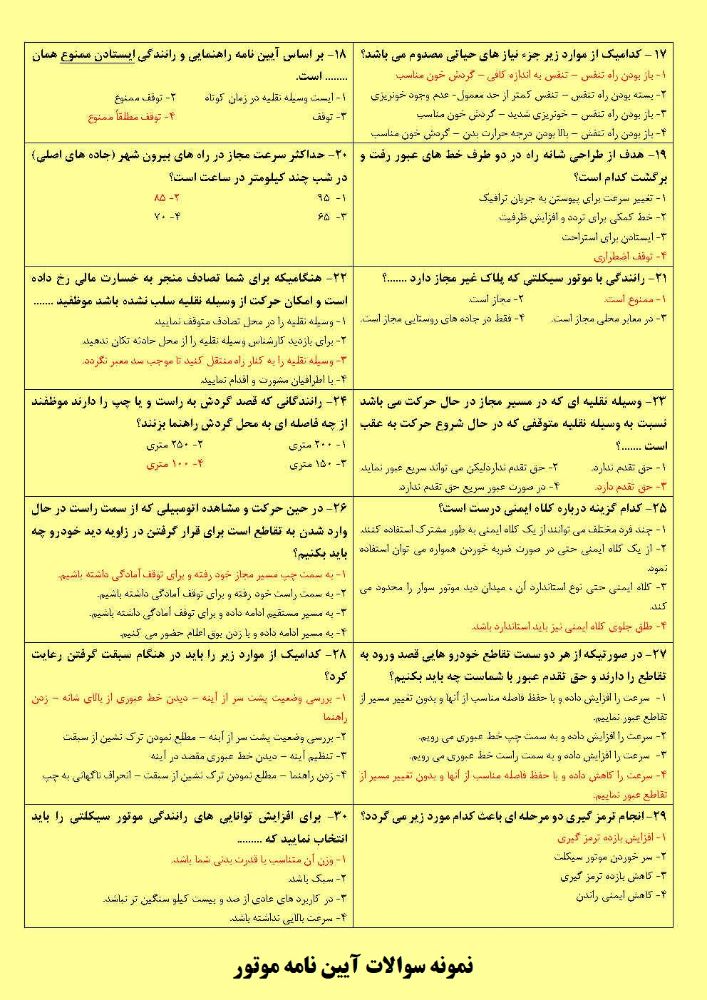 ۱۷ - کدامیک از موارد زیر جزء نیاز های حیاتی مصدوم می باشد؟
۱- باز بودن راه تنفس – تنفس به اندازه کافی – گردش خون مناسب
۲- بسته بودن راه تنفس – تنفس کمتر از حد معمول- عدم وجود خونریزی
۳- باز بودن راه تنفس – خونریزی شدید – گردش خون مناسب
۴- باز بودن راه تنفس – بالا بودن درجه حرارت بدن – گردش خون مناسب
۱۸- بر اساس آیین نامه راهنمایی و رانندگی ایستادن ممنوع همان
........ است.
۱- ایست وسیله نقلیه در زمان کوتاه ۲- توقف ممنوع
۳- توقف ۴- توقف مطلقاً ممنوع
۱۹- هدف از طراحی شانه راه در دو طرف خط های عبور رفت و
برگشت کدام است؟
۱- تغییر سرعت برای پیوستن به جریان ترافیک
۲- خط کمکی برای تردد و افزایش ظرفیت
۳- ایستادن برای استراحت
۴- توقف اضطراری
۲۰- حداکثر سرعت مجاز در راه های بیرون شهر (جاده های اصلی)
در شب چند کیلومتر در ساعت است؟
۱- ۹۵ ۲- ۸۵
۳- ۶۵ ۴- ۷۰
۲۱- رانندگی با موتور سیکلتی که پلاک غیر مجاز دارد .......؟
۱- ممنوع است. ۲- مجاز است.
۳- در معابر محلی مجاز است. ۴- فقط در جاده های روستایی مجاز است.
۲۲- هنگامیکه برای شما تصادف منجر به خسارت مالی رخ داده
است و امکان حرکت از وسیله نقلیه سلب نشده باشد موظفید .......
۱- وسیله نقلیه را در محل تصادف متوقف نمایید.
۲- برای بازدید کارشناس وسیله نقلیه را از محل حادثه تکان ندهید.
۳- وسیله نقلیه را به کنار راه منتقل کنید تا موجب سد معبر نگردد.
۴- با اطرافیان مشورت و اقدام نمایید.
۲۳- وسیله نقلیه ای که در مسیر مجاز در حال حرکت می باشد
نسبت به وسیله نقلیه متوقفی که در حال شروع حرکت به عقب
است .......؟
۱- حق تقدم ندارد. ۲- حق تقدم نداردلیکن می تواند سریع عبور نماید.
۳- حق تقدم دارد. ۴- در صورت عبور سریع حق تقدم ندارد.
۲۴- رانندگانی که قصد گردش به راست و یا چپ را دارند موظفند
از چه فاصله ای به محل گردش راهنما بزنند؟
۱- ۲۰۰ متری ۲- ۲۵۰ متری
۳- ۱۵۰ متری ۴- ۱۰۰ متری
۲۵- کدام گزینه درباره کلاه ایمنی درست است؟
۱- چند فرد مختلف می توانند از یک کلاه ایمنی به طور مشترک استفاده کنند.
۲- از یک کلاه ایمنی حتی در صورت ضربه خوردن همواره می توان استفاده
نمود.
۳- کلاه ایمنی حتی نوع استاندارد آن ، میدان دید موتور سوار را محدود می
کند.
۴- طلق جلوی کلاه ایمنی نیز باید استاندارد باشد.
۲۶- در حین حرکت و مشاهده اتومبیلی که از سمت راست در حال
وارد شدن به تقاطع است برای قرار گرفتن در زاویه دید خودرو چه
باید بکنیم؟
۱- به سمت چپ مسیر مجاز خود رفته و برای توقف آمادگی داشته باشیم.
۲- به سمت راست خود رفته و برای توقف آمادگی داشته باشیم.
۳- به مسیر مستقیم ادامه داده و برای توقف آمادگی داشته باشیم.
۴- به مسیر ادامه داده و با زدن بوق اعلام حضور می کنیم.
۲۷- در صورتیکه از هر دو سمت تقاطع خودرو هایی قصد ورود به
تقاطع را دارند و حق تقدم عبور با شماست چه باید بکنیم؟
۱- سرعت را افزایش داده و با حفظ فاصله مناسب از آنها و بدون تغییر مسیر از
تقاطع عبور نماییم.
۲- سرعت را افزایش داده و به سمت چپ خط عبوری می رویم.
۳- سرعت را افزایش داده و به سمت راست خط عبوری می رویم.
۴- سرعت را کاهش داده و با حفظ فاصله مناسب از آنها و بدون تغییر مسیر از
تقاطع عبور نماییم.
۲۸- کدامیک از موارد زیر را باید در هنگام سبقت گرفتن رعایت
کرد؟
۱- بررسی وضعیت پشت سر از آینه – دیدن خط عبوری از بالای شانه – زدن
راهنما
۲- بررسی وضعیت پشت سر از آینه – مطلع نمودن ترک نشین از سبقت
۳- تنظیم آینه – دیدن خط عبوری مقصد در آینه
۴- زدن راهنما – مطلع نمودن ترک نشین از سبقت – انحراف ناگهانی به چپ
۲۹- انجام ترمز گیری دو مرحله ای باعث کدام مورد زیر می گردد؟
۱- افزایش بازده ترمز گیری
۲- سر خوردن موتور سیکلت
۳- کاهش بازده ترمز گیری
۴- کاهش ایمنی راندن
۳۰- برای افزایش توانایی های رانندگی موتور سیکلتی را باید
انتخاب نمایید که .........
۱- وزن آن متناسب با قدرت بدنی شما باشد.
۲- سبک باشد.
۳- در کاربرد های عادی از صد و بیست کیلو سنگین تر نباشد.
۴- سرعت بالایی نداشته باشد.
نمونه سوالات آیین نامه موتور